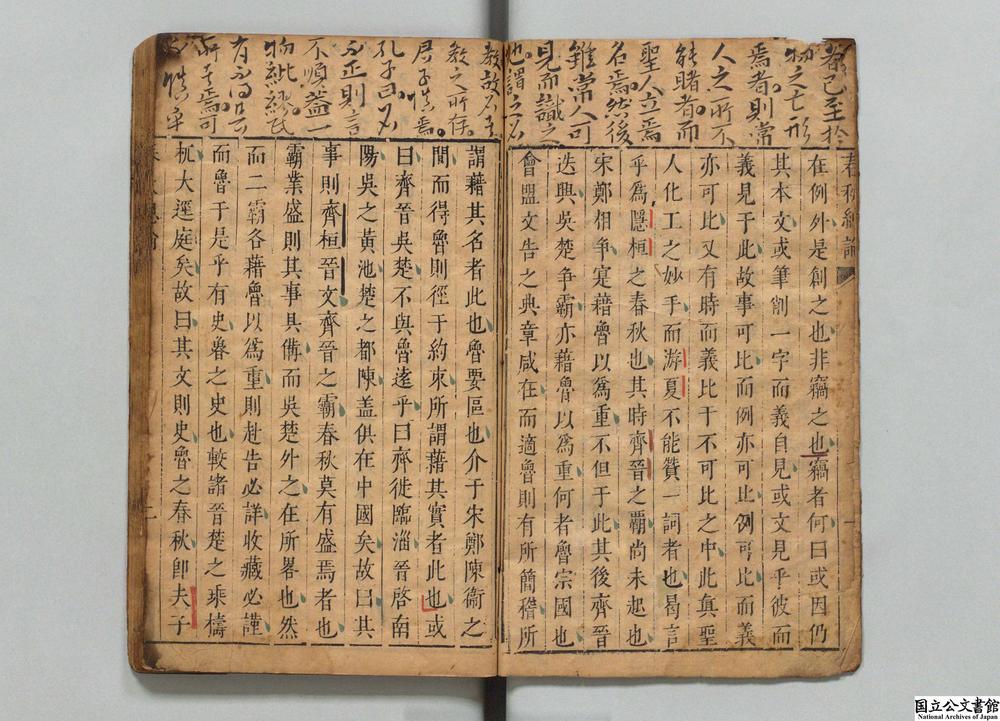 者已至於
物之亡形
焉者則常
人之所不
能睹者而
聖人立焉
名焉然後
雖常人可
見而識之
也謂之名
春秋總論
在例外是創之也非竊之也竊者何曰或因仍
其本文或筆削一字而義自見或文見乎彼而
義見于此故事可比而例亦可比例可比而義
亦可比又有時而義比干不可比之中此真聖
人化工之妙手而游夏不能贊一詞者也曷言
乎為隱桓之春秋也其時齊晉之覇尚未起也
宋鄭相爭寔藉魯以為重不但于此其後齊晉
迭興吳楚爭霸亦藉魯以為重何者魯宗國也
會盟文告之典章咸在而適魯則有所簡稽所
一
教故不主
教之所存
君子慎焉
孔子曰名
不正則言
不順蓋一
物紕繆民
謂藉其名者此也魯要區也介于宋鄭陳衞之
間而得魯則徑于約束所謂藉其實者此也或
曰齊晉吳楚不與魯遠乎曰齊徙臨淄晉啓南
陽吳之黃池楚之都陳盖俱在中國矣故曰其
事則齊桓晉文齊晉之霸春秋莫有盛焉者也
霸業盛則其事具備而吳楚外之在所畧也然
而二霸各藉魯以為重則赴告必詳收藏必謹
而魯于是乎有史魯之史也較諸晉楚之乘檮
杌大逕庭矣故曰其文則史魯之春秋卽夫子
二
国立公文書館
National Archives of Japan